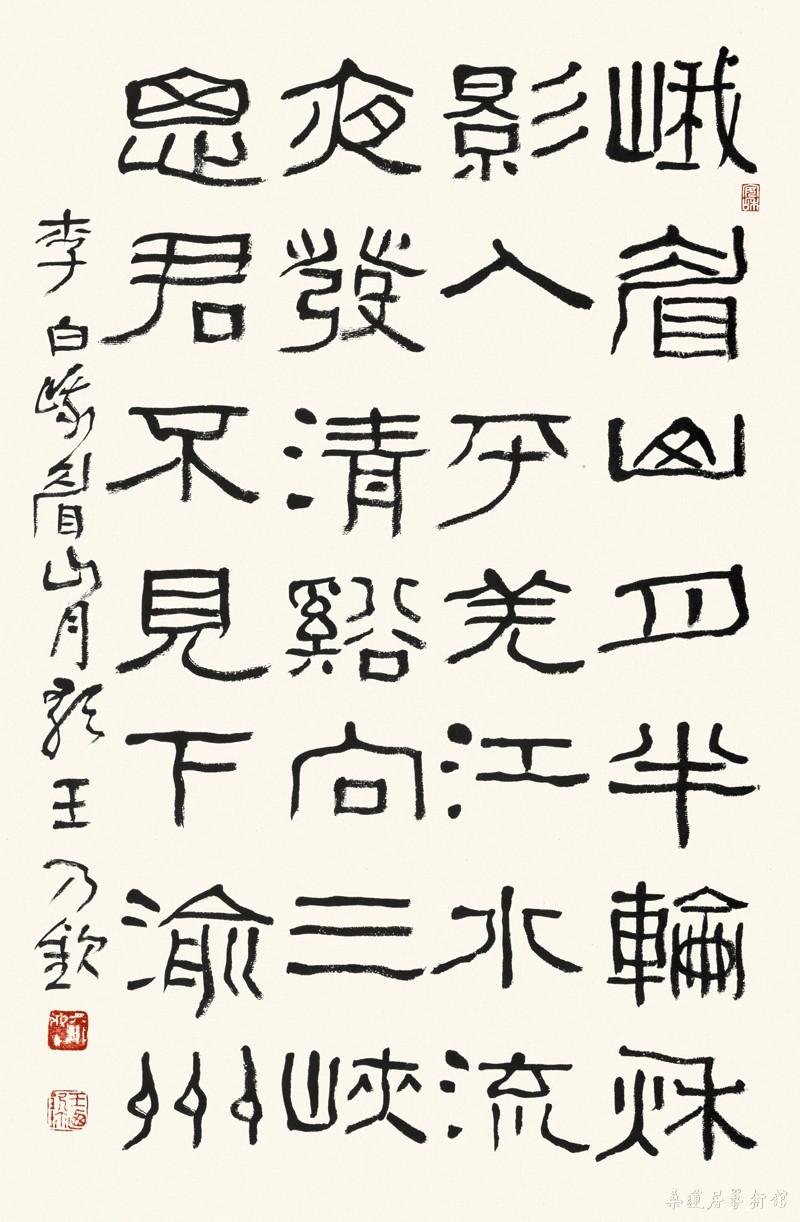 峨眉山月半輪秌
影入平羌江水流
夜發清谿向三峽
思君不見下渝州
李白峨眉山月歌王乃欽
桑蓮居藝術館